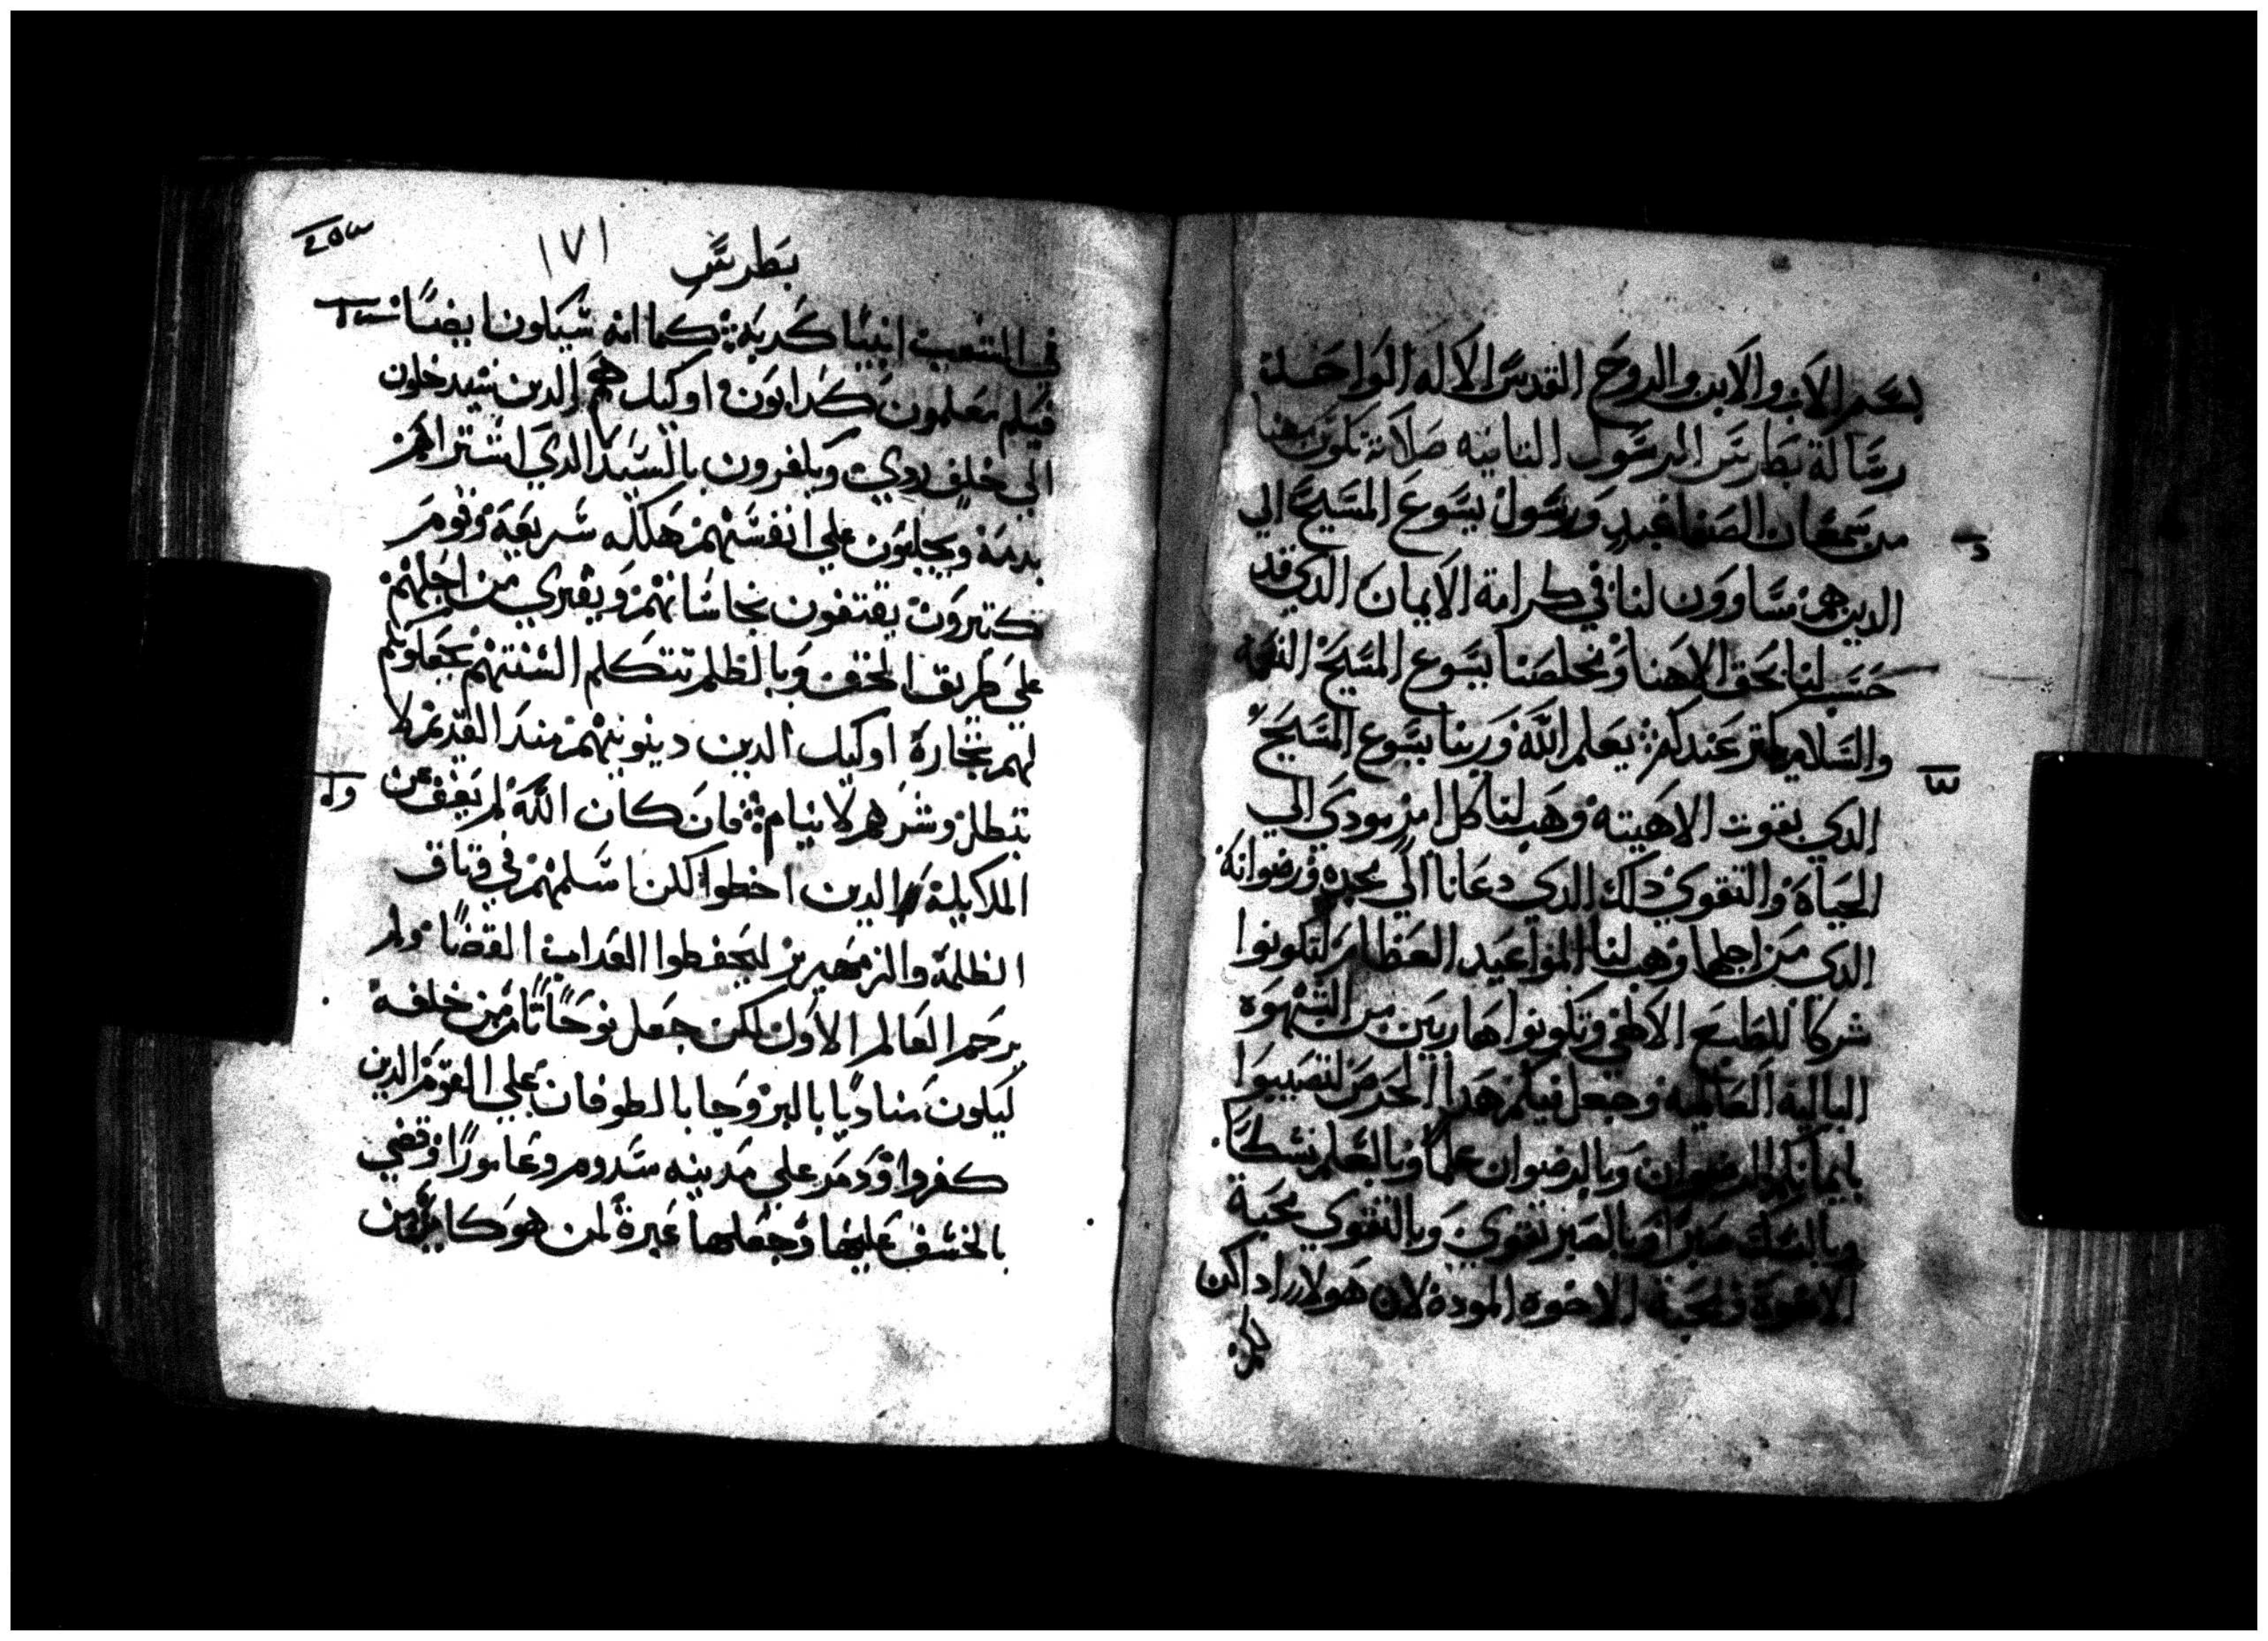 بسم الاب والابن والروح القدس الاله الواحد
رسالة بطرس الرسول التانيه صلاته تكون معنا
من سمعان الصفا عبد ورسول يسوع المسيح الي
الدين هم مساوون لنا في كرامة الايمان الدي قد
حسب لنا بحق الاهنا ومخلصنا يسوع المسيح النعمه
والسلام يكتر عندكم يعلم الله وربنا يسوع المسيح
الدي بقوت الاهيته وهب لنا كل امر يودي الي
الحياة والتقوي دلك الدي دعانا الي مجده ورضوانه
الدي من اجلها وهب لنا المواعيد العظام لتكونوا
شركا للطبع الالهي وتكونوا هاربين من الشهوه
الباليه العالميه وجعل فيكم هدا الحرص لتصيبوا
بايمانكم الرضوان وبالرضوان علما وبالعلم نسكا
وبالنسك صبرا وبالصبر تقوي وبالتقوي محبة
الاخوة ومحبة الاخوه المودة لان هولاء اداكن
لكم
بطرس ١٧١
في الشعب انبيا كدبه كما انه سيكون ايضا
فيكم معلمون كدابون اوليك هم الدين سيدخلون
الي خلف ردي ويكفرون بالسيد الدي اشتراهم
بدمه ويجلبون علي انفسهم هلكه سريعة وقوم
كتيرون يقتفون نجاساتهم ويفتري من اجلهم
علي طريق الحق وبالظلم تتكلم السنتهم يجعلوكم
لهم تجارة اوليك الدين دينونيتهم مند القديم لا
تبطل وشرهم لا ينام فان كان الله لم يعف عن
الملايكة الدين اخطوا لكن اسلمهم في وتاق
الظلمة والزمهرير ليحفظوا العداب القضا ولم
يرحم العالم الاول لكن جعل نوحا تامن من خلفه
ليكون مناديا بالبر وجا بالطوفان علي القوم الدين
كفروا ودمر علي مدينه سدوم وعامورا وقضي
بالخسف عليها وجعلها عبرة لمن هو كاين من